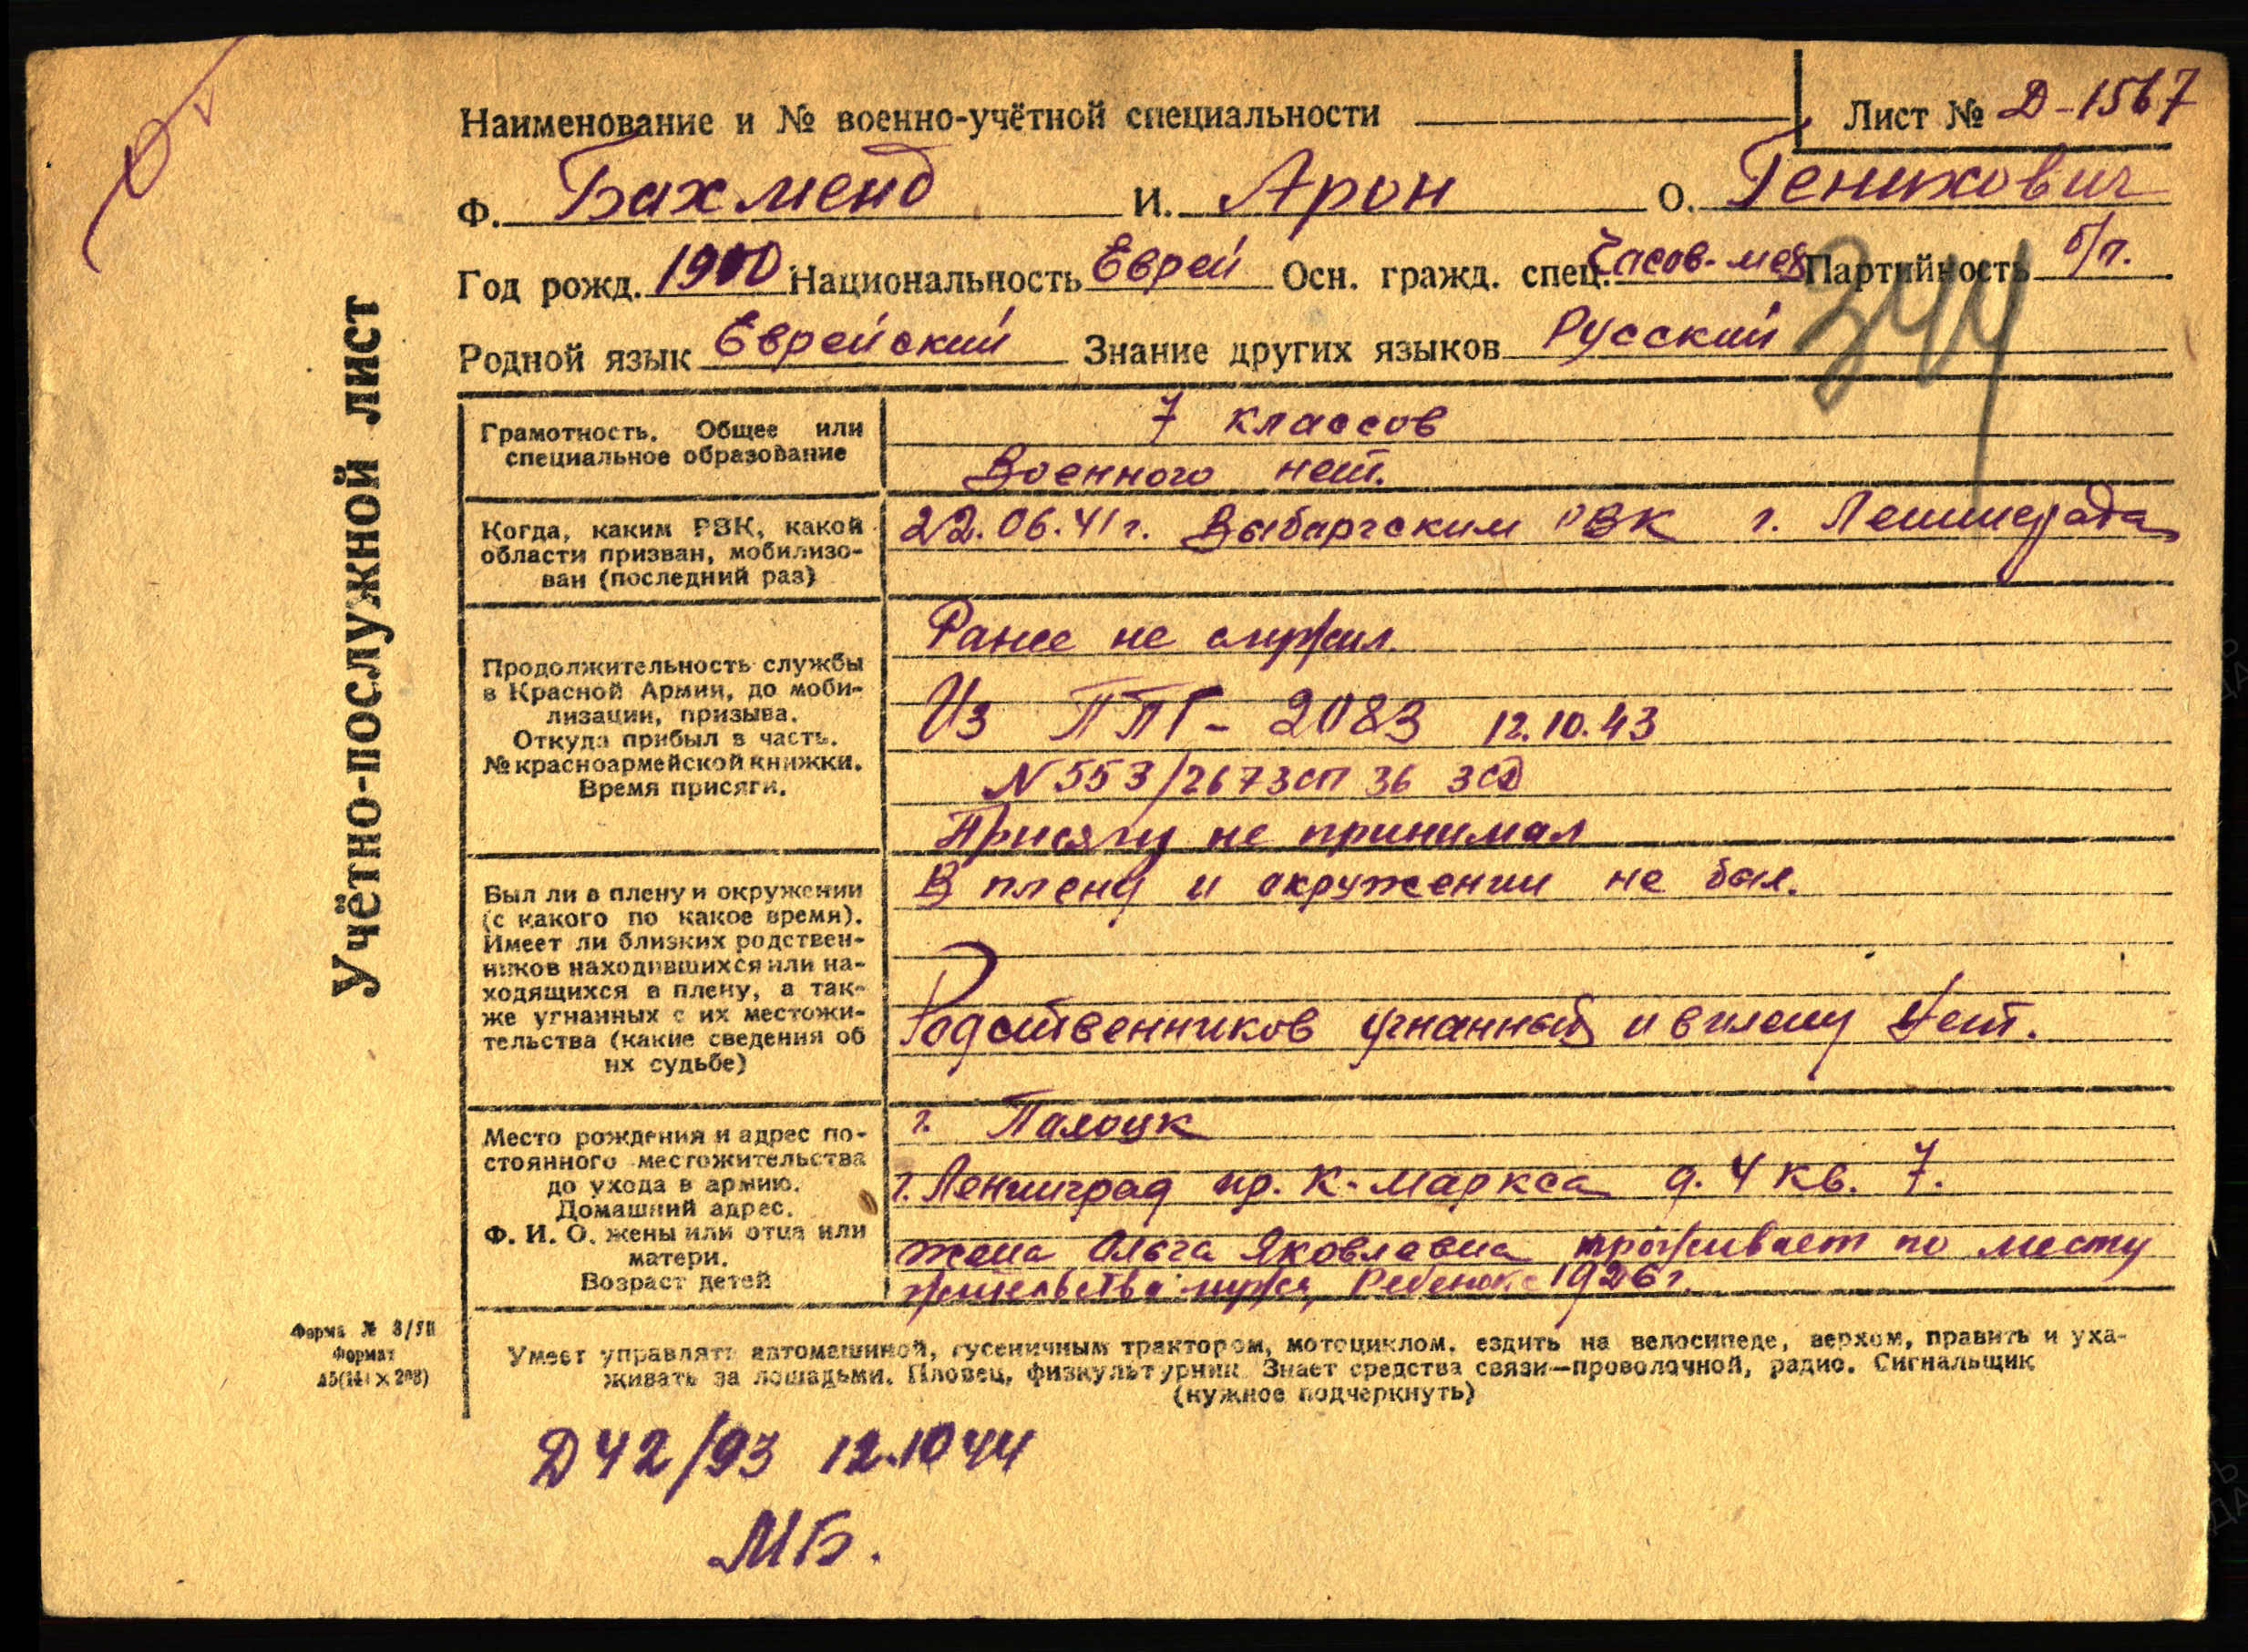 Наименование и № военно-учётной специальности Лист № Д-1567
Ф. Бахменд И. Арон О. Генихович
Год рожд. 1900 Национальность Еврей Осн. гражд. спец. Часов-мех Партийность б/п.
344
Родной язык Еврейский Знание других языков Русский
Учётно-послужной лист
Грамотность. Общее или
специальное образование
7 классов
Военного нет.
Когда, каким РВК, какой
области призван, мобилизо-
ван (последний раз)
22.06.41г. Выбаргским РВК г. Ленинграда
Продолжительность службы
в Красной Армии, до моби-
лизации, призыва.
Откуда прибыл в часть.
№ красноармейской книжки.
Время присяги.
Ранее не служил.
Из ППГ-2083 12.10.43
N 553/2673сп 36 зсд
Присягу не принимал
Был ли в плену и окружении
(с какого по какое время).
Имеет ли близких родствен-
ников находившихся или на-
ходящихся в плену, а так-
же угнанных с их местожи-
тельства (какие сведения об
их судьбе)
В плену и окружении не был.
Родственников угнанных и в плену нет.
Место рождения и адрес по-
стоянного местожительства
до ухода в армию.
Домашний адрес.
Ф. И. О. жены или отца или
матери.
Возраст детей
г. Палоцк
г. Ленинград пр. К-Маркса д. 4 кв. 7.
жена Ольга Яковлевна проживает по месту
жительства мужа, Ребенок 1926г.
Форма № 8/УП
Формат
А5(148×208)
Умеет управлять автомашиной, гусеничным трактором, мотоциклом, ездить на велосипеде, верхом, править и уха-
живать за лошадьми. Пловец, физкультурник. Знает средства связи—проволочной, радио. Сигнальщик
(нужное подчеркнуть)
Д42/93 12.10 44
МБ.